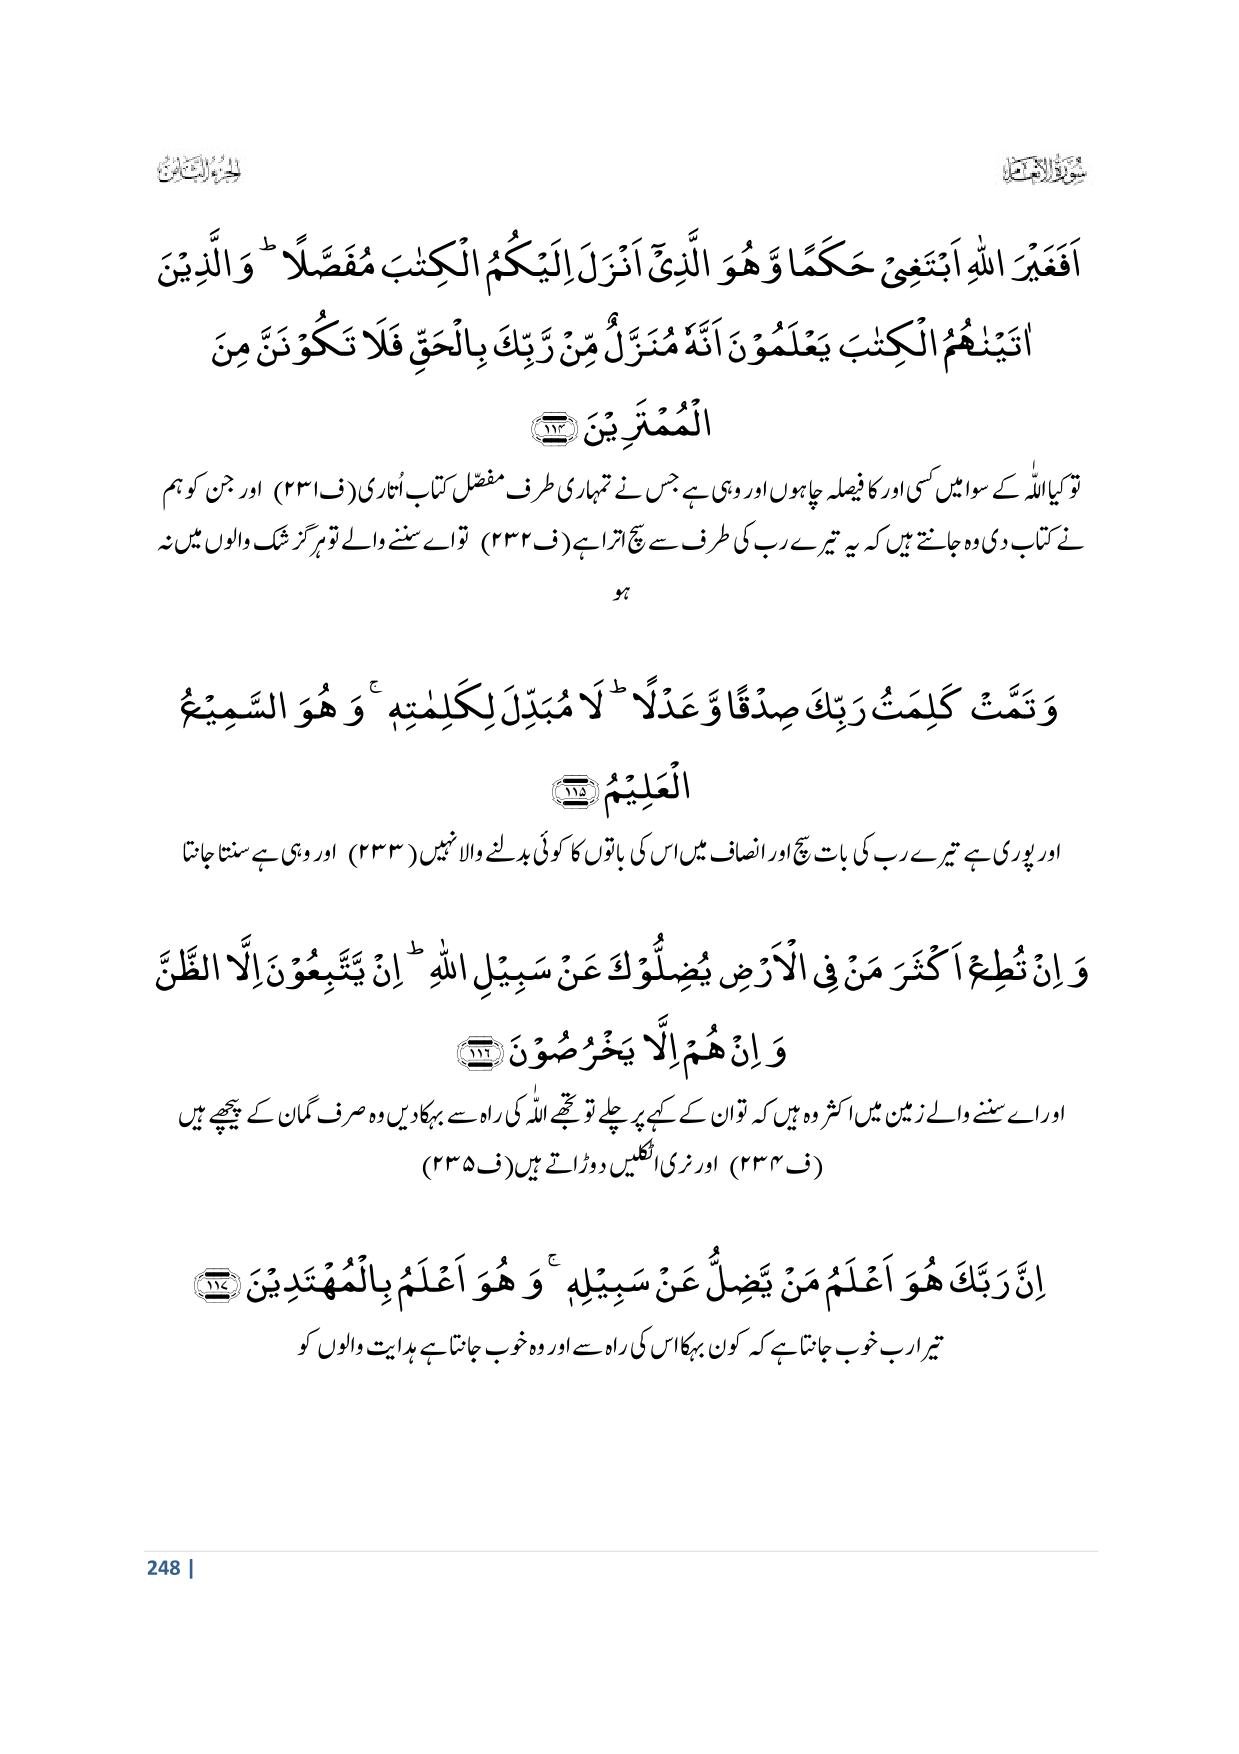 سُوْرَةُ الْاَنْعَام
الجزءالثامن
اَفَغَیْرَ اللّٰهِ اَبْتَغِیْ حَكَمًا وَّ هُوَ الَّذِیْۤ اَنْزَلَ اِلَیْكُمُ الْكِتٰبَ مُفَصَّلًاؕ وَ الَّذِیْنَ
اٰتَیْنٰهُمُ الْكِتٰبَ یَعْلَمُوْنَ اَنَّهٗ مُنَزَّلٌ مِّنْ رَّبِّكَ بِالْحَقِّ فَلَا تَكُوْنَنَّ مِنَ
الْمُمْتَرِیْنَ ﴿۱۱۴﴾
تو کیا اللّٰہ کے سوا میں کسی اور کا فیصلہ چاہوں اور وہی ہے جس نے تمہاری طرف مفصّل کتاب اُتاری(ف۲۳۱) اور جن کو ہم
نے کتاب دی وہ جانتے ہیں کہ یہ تیرے رب کی طرف سے سچ اترا ہے(ف۲۳۲) تو اے سننے والے تو ہرگز شک والوں میں نہ
ہو
وَ تَمَّتْ كَلِمَتُ رَبِّكَ صِدْقًا وَّ عَدْلًاؕ لَا مُبَدِّلَ لِكَلِمٰتِهٖۚ وَ هُوَ السَّمِیْعُ
الْعَلِیْمُ ﴿۱۱۵﴾
اور پوری ہے تیرے رب کی بات سچ اور انصاف میں اس کی باتوں کا کوئی بدلنے والا نہیں(۲۳۳) اور وہی ہے سنتا جانتا
وَ اِنْ تُطِعْ اَكْثَرَ مَنْ فِی الْاَرْضِ یُضِلُّوْكَ عَنْ سَبِیْلِ اللّٰهِؕ اِنْ یَّتَّبِعُوْنَ اِلَّا الظَّنَّ
وَ اِنْ هُمْ اِلَّا یَخْرُصُوْنَ ﴿۱۱۶﴾
اور اے سننے والے زمین میں اکثر وہ ہیں کہ تو ان کے کہے پر چلے تو تجھے اللّٰہ کی راہ سے بہکادیں وہ صرف گمان کے پیچھے ہیں
(ف۲۳۴) اور نری اٹکلیں دوڑاتے ہیں(ف۲۳۵)
اِنَّ رَبَّكَ هُوَ اَعْلَمُ مَنْ یَّضِلُّ عَنْ سَبِیْلِهٖۚ وَ هُوَ اَعْلَمُ بِالْمُهْتَدِیْنَ ﴿۱۱۷﴾
تیرا رب خوب جانتا ہے کہ کون بہکا اس کی راہ سے اور وہ خوب جانتا ہے ہدایت والوں کو
248 |